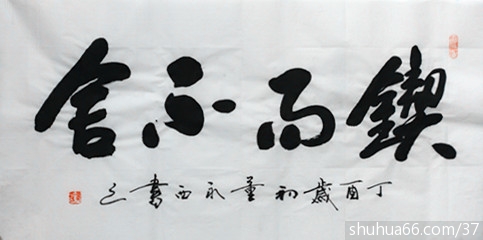 鍥而不舍
丁酉歲初董永西書之
shuhua66.com/37